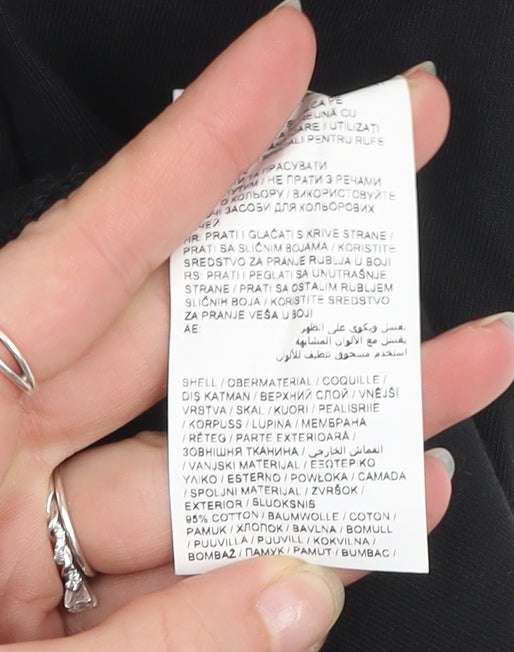 CA PE
EUNĂ CU
/ UTILIZAȚI
PENTRU RUFE
ПРАСУВАТИ
/ НЕ ПРАТИ З РЕЧАМИ
КОЛЬОРУ / ВИКОРИСТОВУЙТЕ
ЗАСОБИ ДЛЯ КОЛЬОРОВИХ
HR: PRATI I GLAČATI S KRIVE STRANE /
PRATI SA SLIČNIM BOJAMA / KORISTITE
SREDSTVO ZA PRANJE RUBLJA U BOJI
RS: PRATI I PEGLATI SA UNUTRAŠNJE
STRANE / PRATI SA OSTALIM RUBLJEM
SLIČNIH BOJA / KORISTITE SREDSTVO
ZA PRANJE VEŠA U BOJI
AE: يغسل ويكوى على الظهر
يغسل مع الألوان المشابهة
استخدم مسحوق تنظيف للألوان
SHELL / OBERMATERIAL / COQUILLE /
DIŞ KATMAN / ВЕРХНИЙ СЛОЙ / VNĚJŠÍ
VRSTVA / SKAL / KUORI / PEALISRIIE
/ KORPUSS / LUPINA / МЕМБРАНА
/ RÉTEG / PARTE EXTERIOARĂ /
ЗОВНІШНЯ ТКАНИНА / القماش الخارجي
/ VANJSKI MATERIJAL / ΕΞΩΤΕΡΙΚΟ
ΥΛΙΚΟ / ESTERNO / POWŁOKA / CAMADA
/ SPOLJNI MATERIJAL / ZVRŠOK /
EXTERIOR / SLUOKSNIS
95% COTTON / BAUMWOLLE / COTON /
PAMUK / ХЛОПОК / BAVLNA / BOMULL
/ PUUVILLA / PUUVILL / KOKVILNA /
BOMBAŽ / ПАМУК / PAMUT / BUMBAC /